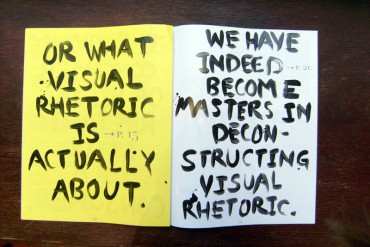 OR WHAT
VISUAL
RHETORIC
IS → P. 15
ACTUALLY
ABOUT.
WE HAVE
INDEED → P. 21
BECOME
MASTERS IN
DECON-
STRUCTING
VISUAL
RHETORIC.